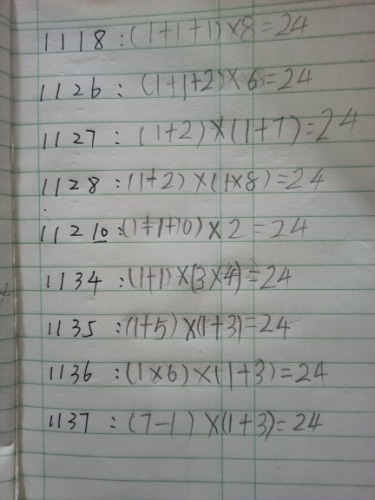 1118:(1+1+1)×8=24
1126:(1+1+2)×6=24
1127:(1+2)×(1+7)=24
1128:(1+2)×(1×8)=24
11210:(1+1+10)×2=24
1134:(1+1)×(3×4)=24
1135:(1+5)×(1+3)=24
1136:(1×6)×(1+3)=24
1137:(7-1)×(1+3)=24